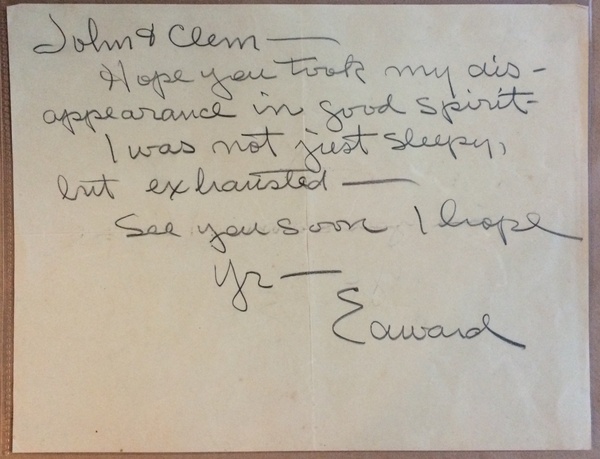 John & Clem —
Hope you took my dis-
appearance in good spirit-
I was not just sleepy,
but exhausted —
See you soon I hope
Yr —
Edward